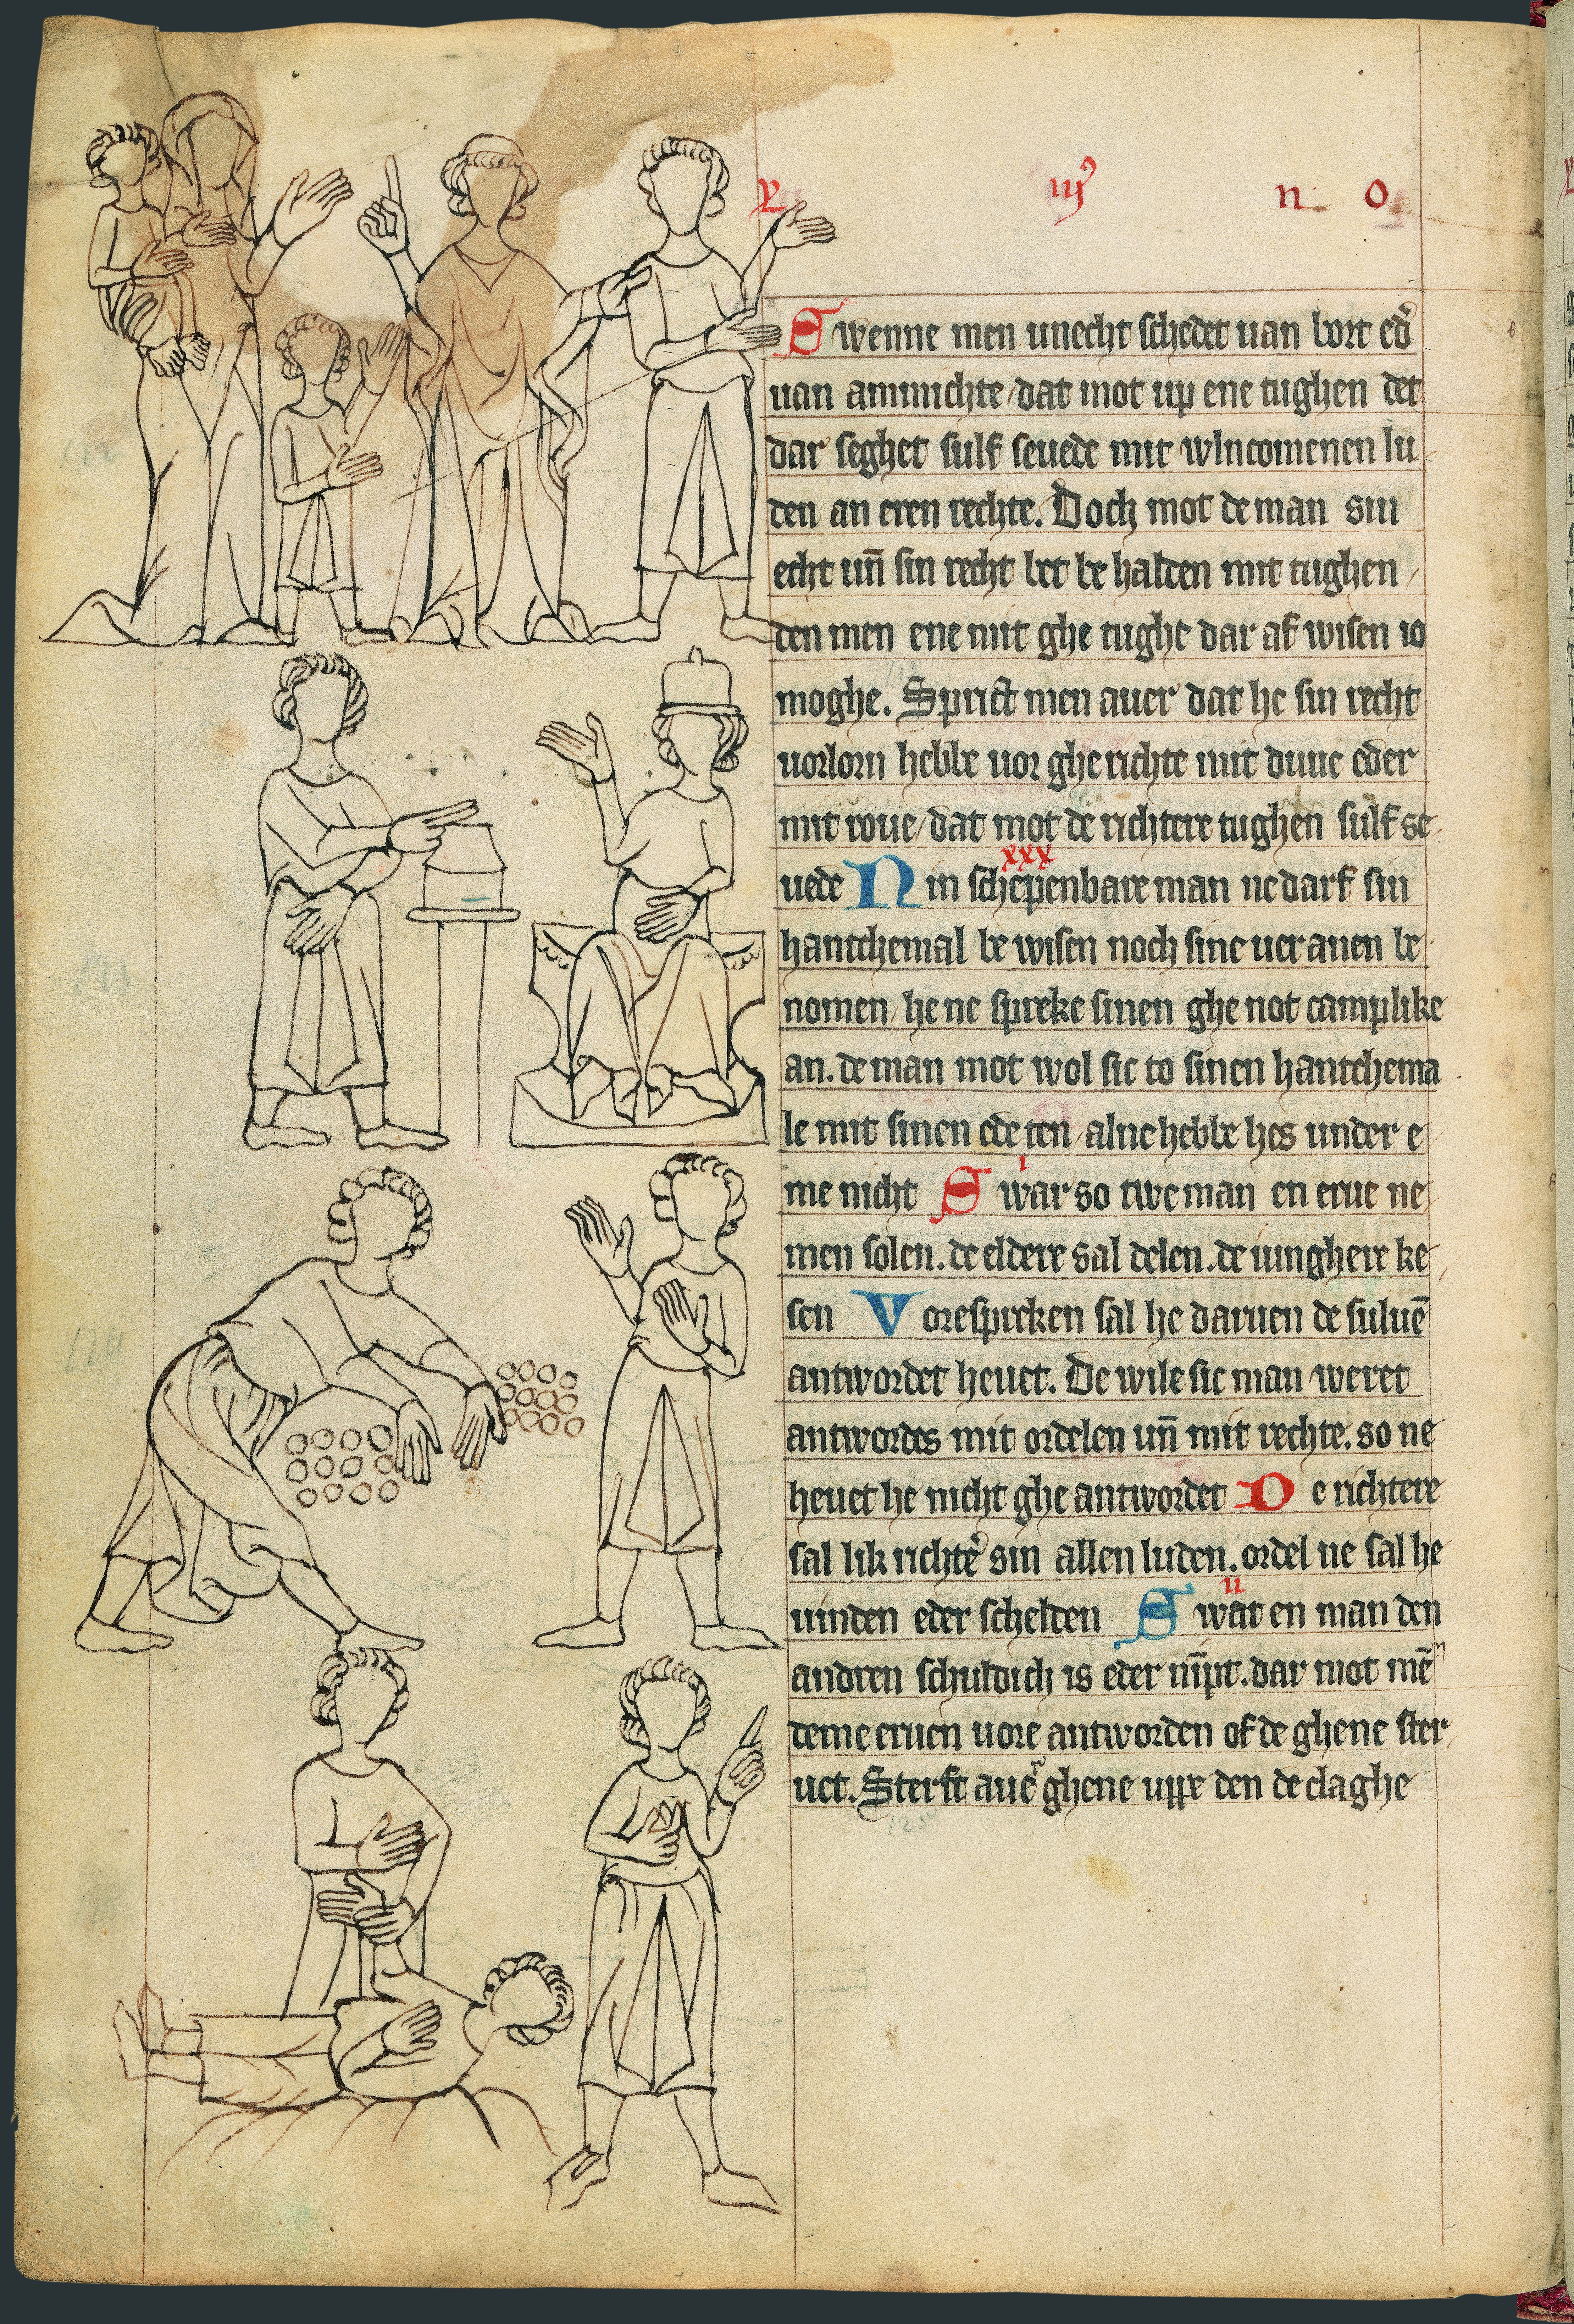 v iij n o
Swenne men unecht schedet uan bort ed'
uan ammichte / dat mot up ene tughen det
dar seghet sulf seuede mit wlncomenen lu
den an eren rechte. Doch mot de man sin
echt un̄ sin recht bet be halden mit tughen /
den men ene mit ghe tughe dar af wisen io
moghe. Sprict men auer dat he sin recht
uorlorn hebbe uor gherichte mit duue eder
mit roue / dat mot de richtere tughen sulf se
xxx
uede Nin schepenbare man ne darf sin
hantchemal be wisen noch sine uer anen be
nomen / he ne spreke sinen ghe not camplike
an. de man mot wol sic to sinen hantchema
le mit sinen ede ten / alne hebbe hes under e
i
me nicht Swar so twe man en erue ne
men solen. de eldere sal delen. de iunghere ke
sen Vorespreken sal he daruen de suluē
antwordet heuet. De wile sic man weret
antwordes mit ordelen un̄ mit rechte. so ne
heuet he nicht ghe antwordet De richtere
sal lik richte' sin allen luden. ordel ne sal he
ii
uinden eder schelden Swat en man den
andren schuldich is eder nīpt. dar mot mē
deme eruen uore antworden of de ghene ster
uet. Sterft aue' ghene uppe den de claghe
122
123
124
125